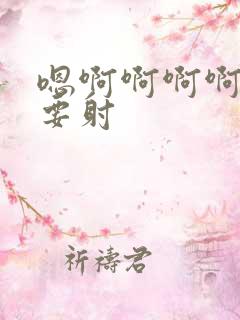 嗯啊啊啊啊
要射
祈禱君